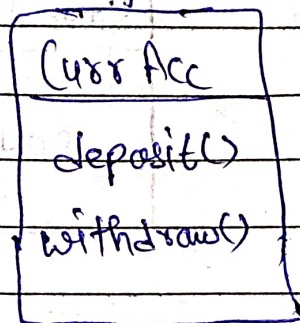 Curr Acc
deposit()
withdraw()